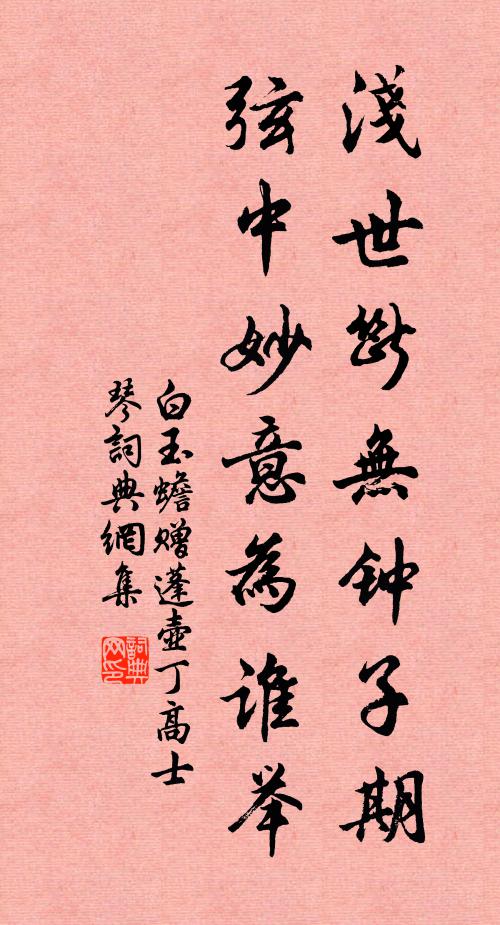 淺世斷無钟子期
弦中妙意為谁举
白玉蟾赠蓬壺丁高士
琴詞典網集
詞典网印